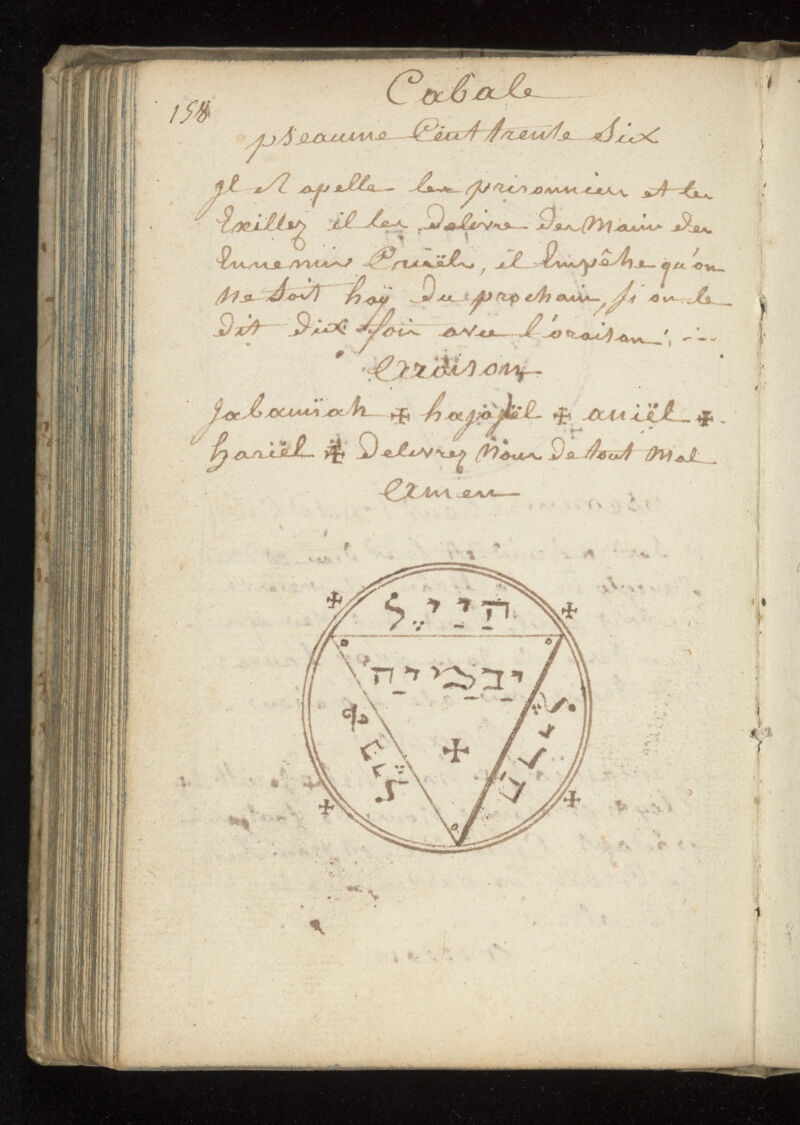 158
Cabale
pseaume Cent trente Six
Jl Rapelle les prisonniers et les
Exillez il les delivre des Mains des
Ennemis Cruëls, il Empêhe qu'on
ne Soit haÿ du prochain, si on le
dit dix fois avec l'oraison
Oraison
Jabamïah ✠ hajajël ✠ aniël ✠
hariël ✠ delivrez Nous de tout Mal
Amen
הַיַיֵל
יבַמַייַה